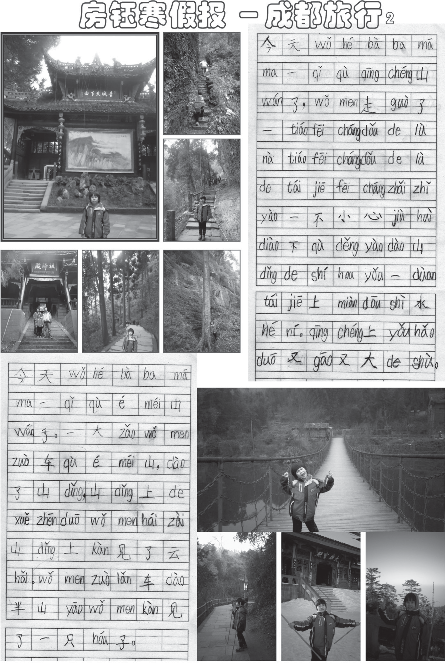 房钰寒假报 - 成都旅行2
今天wǒ hé bà ba mā
ma 一 qǐ qù qīng chéng 山
wán 了。wǒ men 走 guò 了
一 tiáo fēi cháng dǒu de là
nà tiáo fēi cháng dǒu de là
de tái jiē fēi cháng zhǎi zhǐ
yào 一 不 小 心 jiù huì
diào 下 qù děng yào dào 山
dǐng de shí hou yǒu 一 duàn
tái jiē 上 miàn dōu shì 水
hé ní。qīng chéng 上 yǒu hǎo
duō 又 gāo 又 大 de shù。
今 天 wǒ hé bà ba mā
ma 一 qǐ qù é méi 山
wán 了。一 大 zǎo wǒ men
zuò 车 qù é méi 山。dào
了 山 dǐng, 山 dǐng 上 de
xuě zhēn duō wǒ men hái zài
山 dǐng 上 kàn 见 了 云
hǎi。wǒ men zuò lǎn 车 dào
半 山 yāo wǒ men kàn 见
了 一 只 hóu 子。